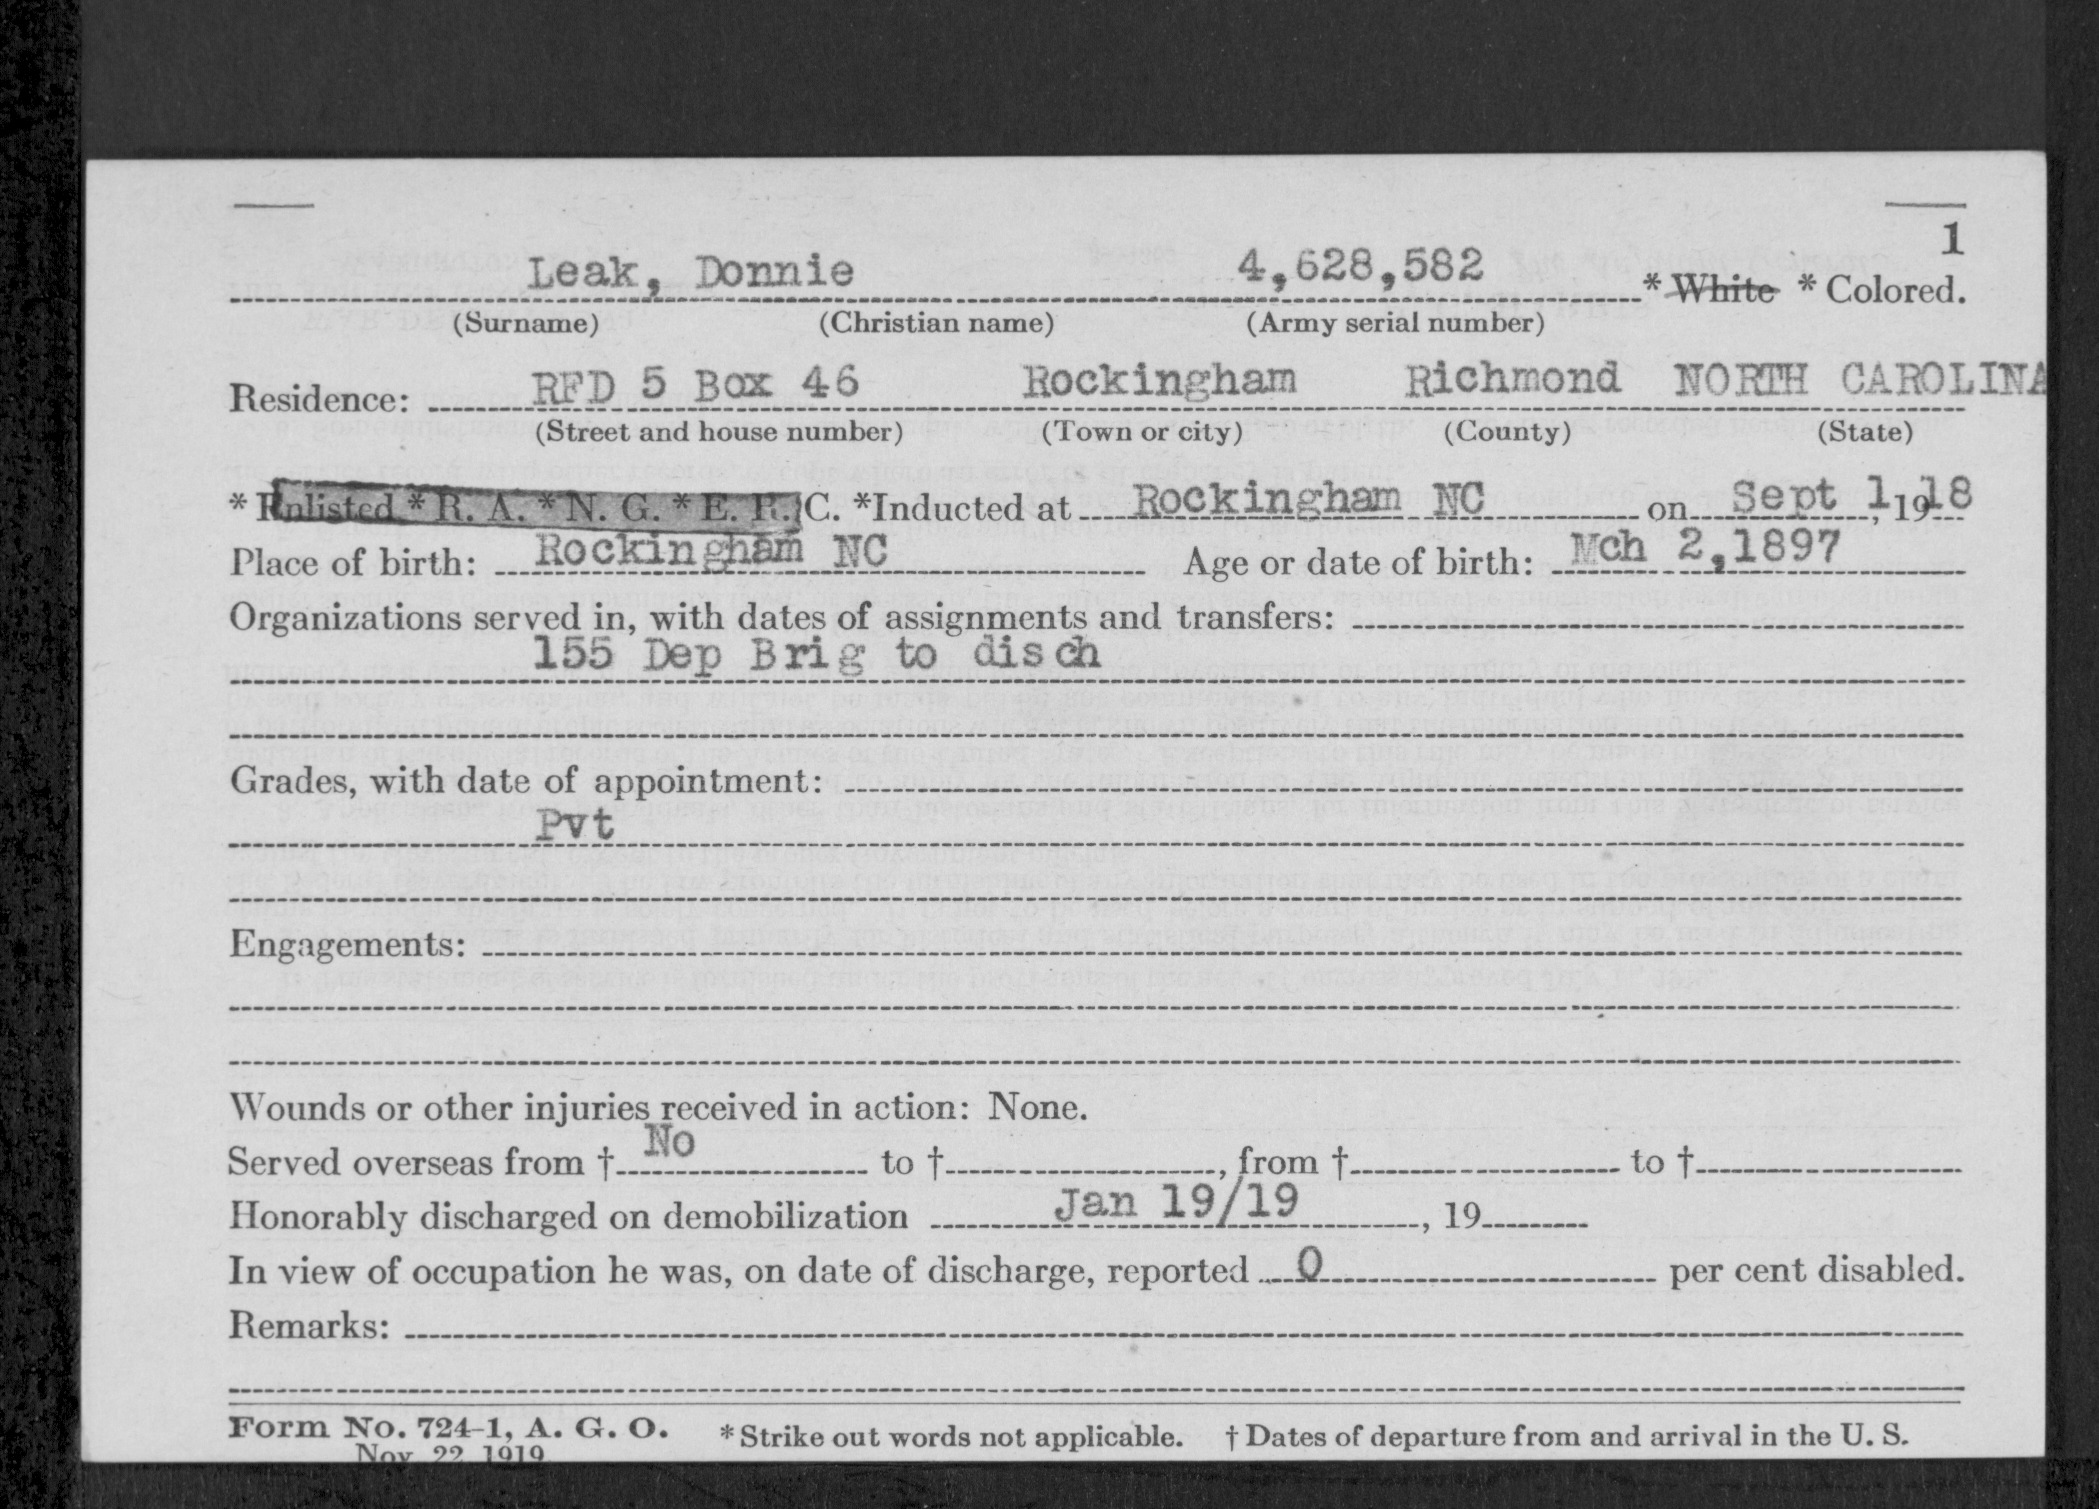 1
Leak, Donnie 4,628,582 * White * Colored.
(Surname) (Christian name) (Army serial number)
Residence: RFD 5 Box 46 Rockingham Richmond NORTH CAROLINA
(Street and house number) (Town or city) (County) (State)
* Enlisted * R. A. * N. G. * E. R. C. *Inducted at Rockingham NC on Sept 1, 1918
Place of birth: Rockingham NC Age or date of birth: Mch 2,1897
Organizations served in, with dates of assignments and transfers:
155 Dep Brig to disch
Grades, with date of appointment:
Pvt
Engagements:
Wounds or other injuries received in action: None.
Served overseas from † No to †, from † to †
Honorably discharged on demobilization Jan 19/19, 19
In view of occupation he was, on date of discharge, reported 0 per cent disabled.
Remarks:
Form No. 724-1, A. G. O. * Strike out words not applicable. † Dates of departure from and arrival in the U. S.
Nov 22 1919